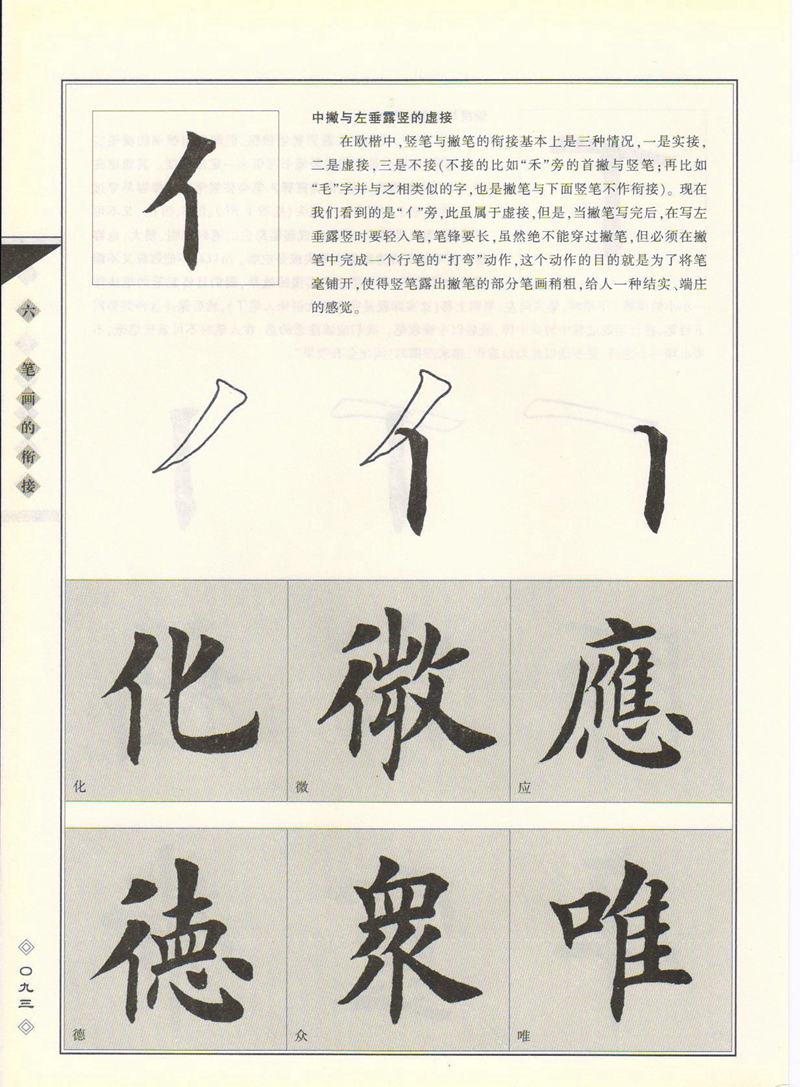 亻
中撇与左垂露竖的虚接
在欧楷中,竖笔与撇笔的衔接基本上是三种情况,一是实接,
二是虚接,三是不接(不接的比如“禾”旁的首撇与竖笔;再比如
“毛”字并与之相类似的字,也是撇笔与下面竖笔不作衔接)。现在
我们看到的是“亻”旁,此虽属于虚接,但是,当撇笔写完后,在写左
垂露竖时要轻入笔,笔锋要长,虽然绝不能穿过撇笔,但必须在撇
笔中完成一个行笔的“打弯”动作,这个动作的目的就是为了将笔
毫铺开,使得竖笔露出撇笔的部分笔画稍粗,给人一种结实、端庄
的感觉。
六 笔画的衔接
化 微 應
化 微 应
德 眾 唯
德 众 唯
〇九三